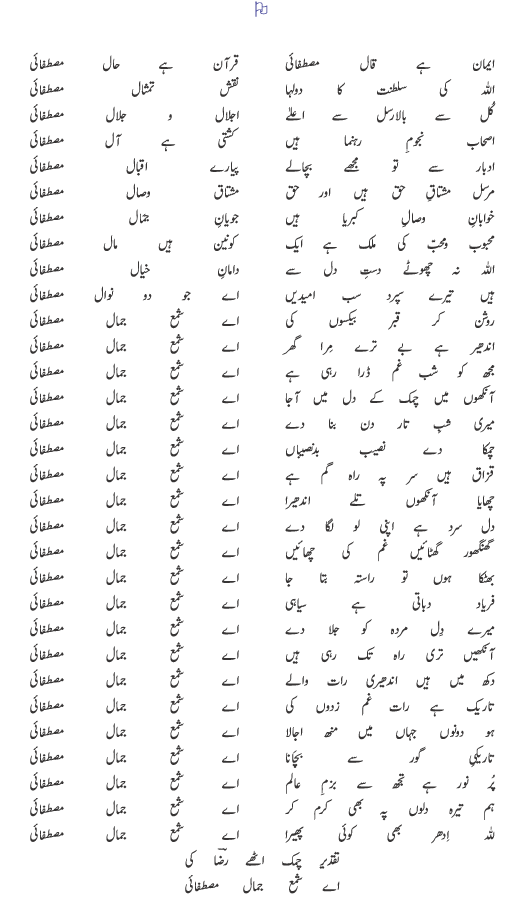 ایمان ہے قال مصطفائی قرآن ہے حال مصطفائی
اللہ کی سلطنت کا دولہا نقش تمثال مصطفائی
کُل سے بالا رسل سے اعلیٰ اجلال و جلال مصطفائی
اصحاب نجومِ رہنما ہیں کشتی ہے آل مصطفائی
ادبار سے تو مجھے بچالے پیارے اقبال مصطفائی
مرسل مشتاقِ حق ہیں اور حق مشتاق وصال مصطفائی
خواہانِ وصالِ کبریا ہیں جویانِ جمال مصطفائی
محبوب ومحبّ کی ملک ہے ایک کونین ہیں مال مصطفائی
اللہ نہ چھوٹے دستِ دل سے دامانِ خیال مصطفائی
ہیں تیرے سپرد سب امیدیں اے جو دو نوال مصطفائی
روشن کر قبر بیکسوں کی اے شمع جمال مصطفائی
اندھیر ہے بے ترے مِرا گھر اے شمع جمال مصطفائی
مجھ کو شب غم ڈرا رہی ہے اے شمع جمال مصطفائی
آنکھوں میں چمک کے دل میں آجا اے شمع جمال مصطفائی
میری شبِ تار دن بنا دے اے شمع جمال مصطفائی
چمکا دے نصیب بدنصیباں اے شمع جمال مصطفائی
قزاق ہیں سر پہ راہ گم ہے اے شمع جمال مصطفائی
چھایا آنکھوں تلے اندھیرا اے شمع جمال مصطفائی
دل سرد ہے اپنی لو لگا دے اے شمع جمال مصطفائی
گھنگھور گھٹائیں غم کی چھائیں اے شمع جمال مصطفائی
بھٹکا ہوں تو راستہ بتا جا اے شمع جمال مصطفائی
فریاد دباتی ہے سیاہی اے شمع جمال مصطفائی
میرے دِل مردہ کو جلا دے اے شمع جمال مصطفائی
آنکھیں تری راہ تک رہی ہیں اے شمع جمال مصطفائی
دکھ میں ہیں اندھیری رات والے اے شمع جمال مصطفائی
تاریک ہے رات غم زدوں کی اے شمع جمال مصطفائی
ہو دونوں جہاں میں منھ اجالا اے شمع جمال مصطفائی
تاریکیِ گور سے بچانا اے شمع جمال مصطفائی
پُر نور ہے تجھ سے بزمِ عالم اے شمع جمال مصطفائی
ہم تیرہ دلوں پہ بھی کرم کر اے شمع جمال مصطفائی
للہ اِدھر بھی کوئی پھیرا اے شمع جمال مصطفائی
تقدیر چمک اٹھے رضاؔ کی
اے شمع جمال مصطفائی